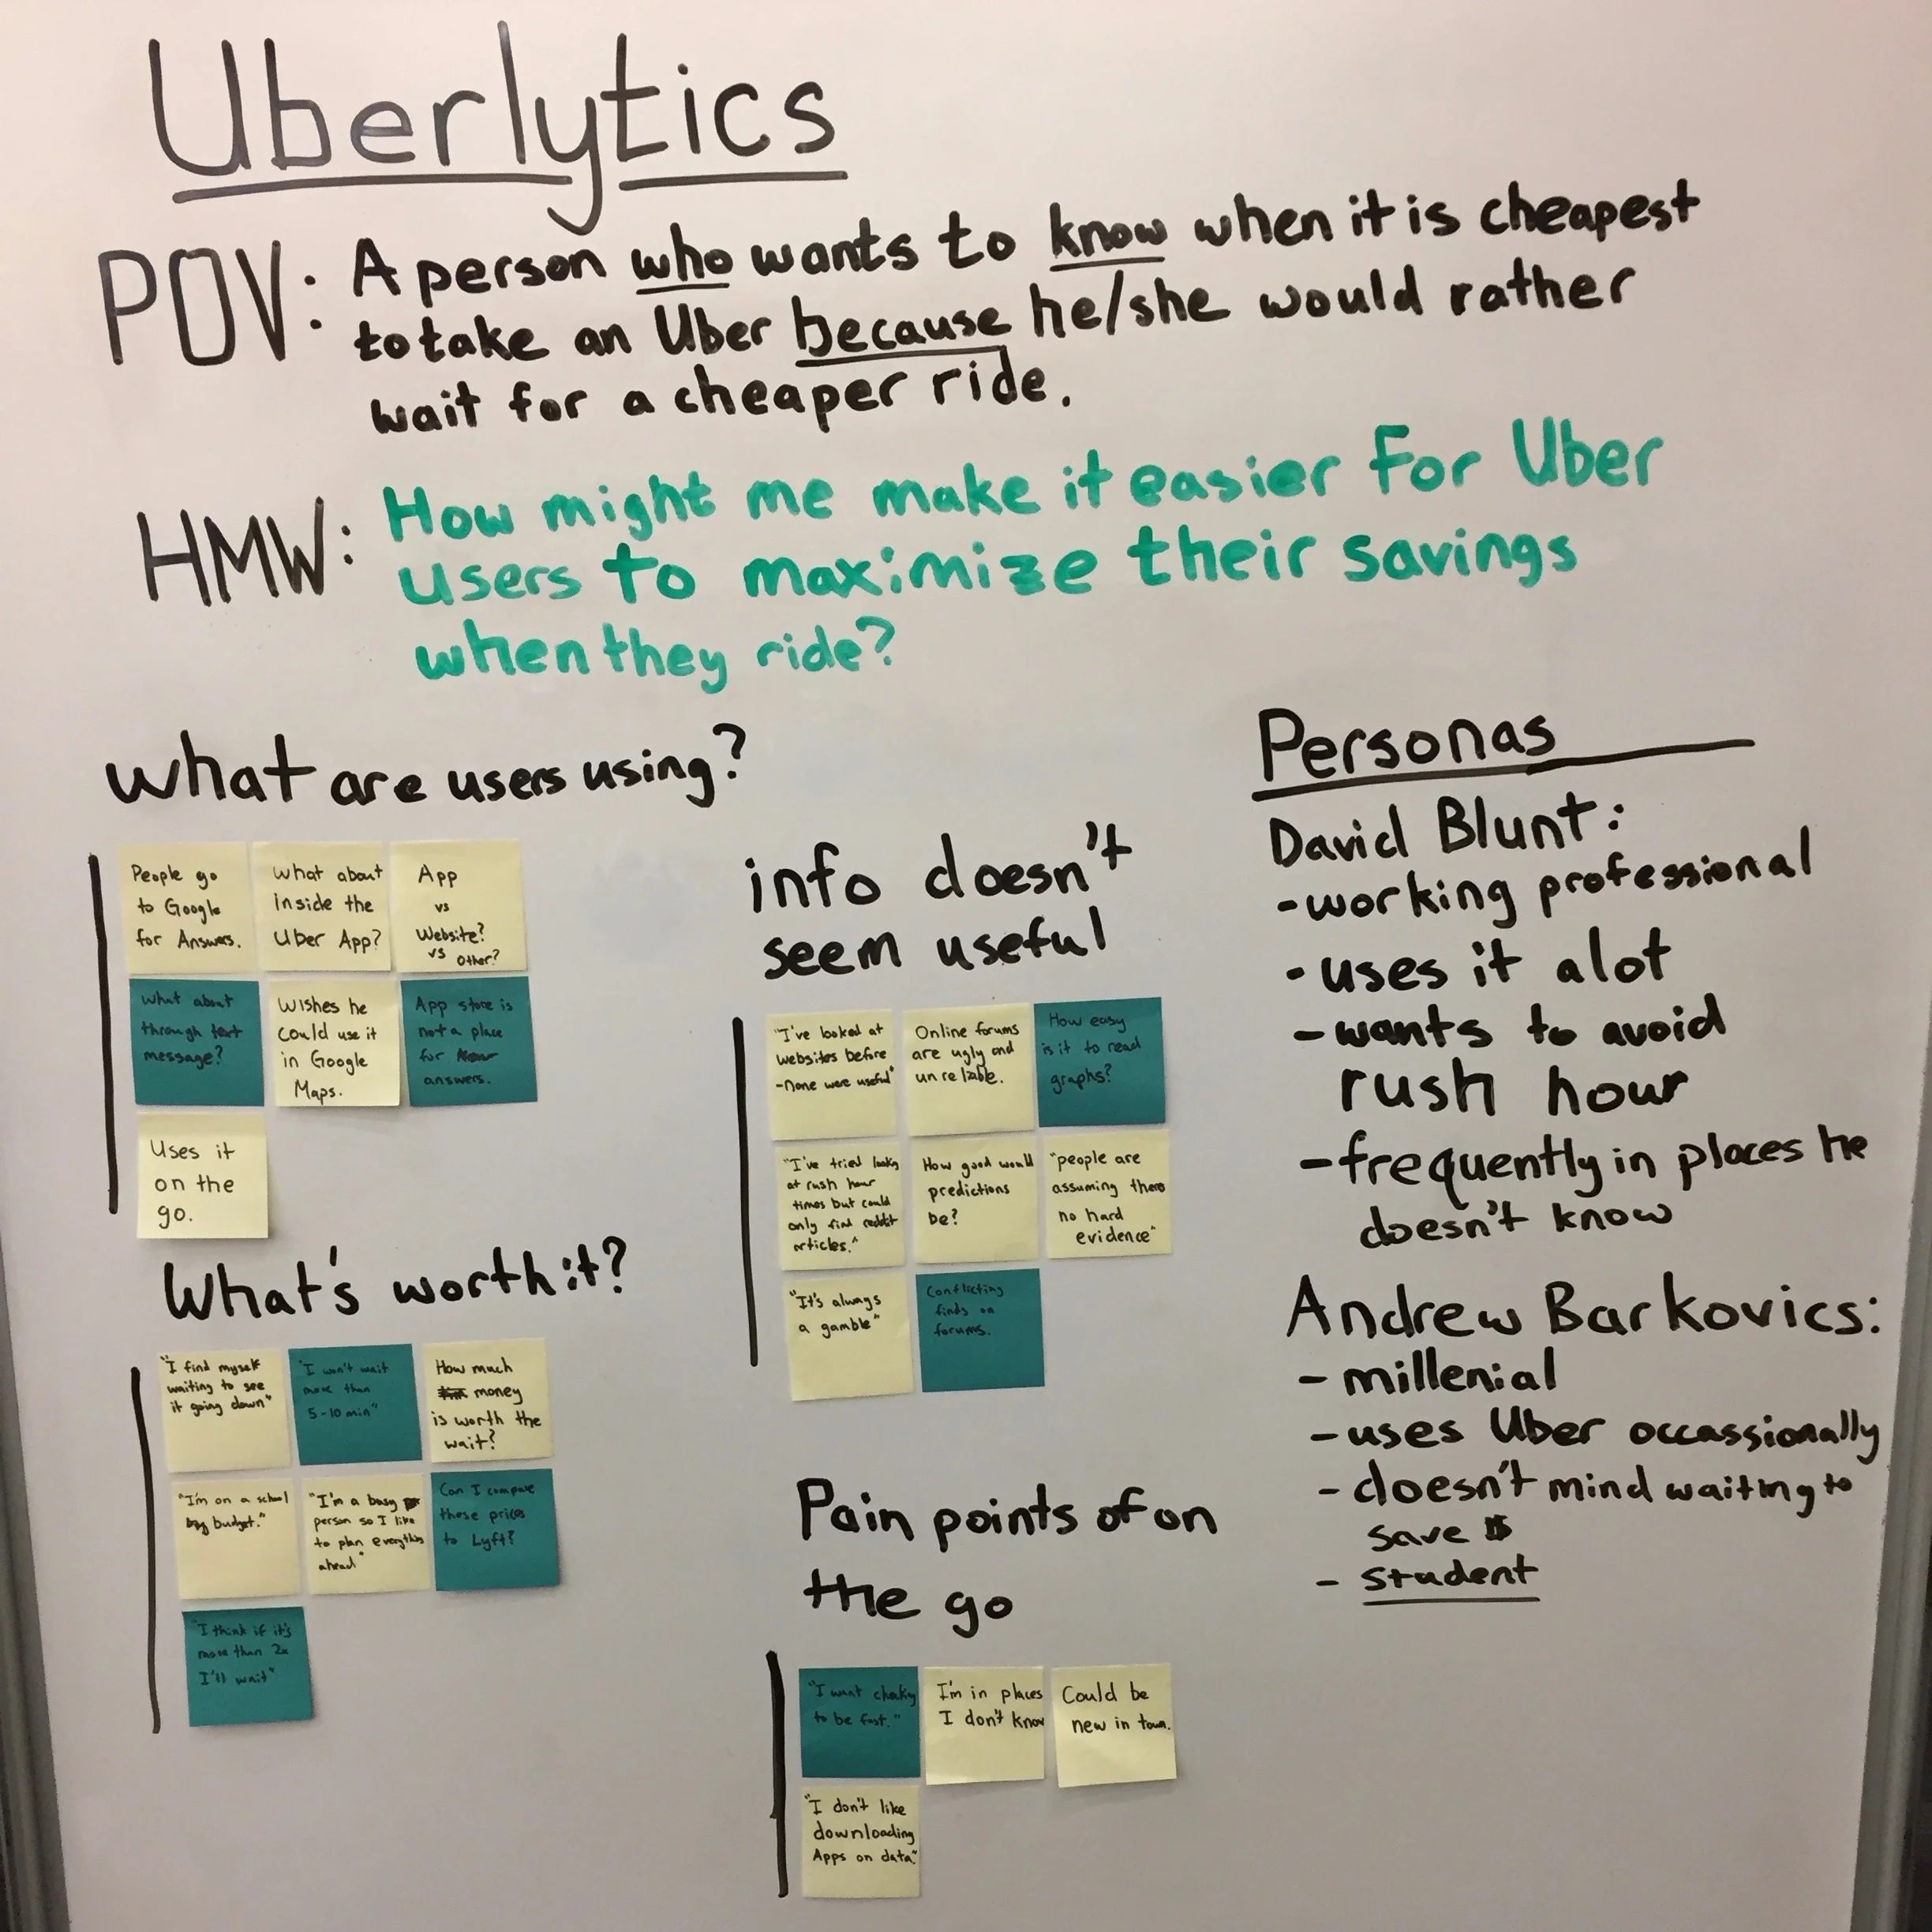 Uberlytics
POV: A person who wants to know when it is cheapest
to take an Uber because he/she would rather
wait for a cheaper ride.
HMW: How might me make it easier for Uber
users to maximize their savings
when they ride?
What are users using?
People go
to Google
for Answers.
What about
inside the
Uber App?
App
vs
Website?
vs other?
What about
through text
message?
Wishes he
could use it
in Google
Maps.
App store is
not a place
for
answers.
Uses it
on the
go.
What's worth it?
"I find myself
waiting to see
it going down"
"I won't wait
more than
5-10 min"
How much
money
is worth the
wait?
"I'm on a school
budget."
"I'm a busy
person so I like
to plan everything
ahead"
Can I compare
these prices
to Lyft?
"I think if it's
more than 2x
I'll wait"
info doesn't
seem useful
"I've looked at
websites before
-none were useful"
Online forums
are ugly and
unreliable.
How easy
is it to read
graphs?
"I've tried looking
at rush hour
times but could
only find reddit
articles."
How good would
predictions
be?
"people are
assuming theres
no hard
evidence"
"It's always
a gamble"
Conflicting
finds on
forums.
Pain points of on
the go
"I want checking
to be fast."
I'm in places
I don't know
Could be
new in town.
"I don't like
downloading
Apps on data."
Personas
David Blunt:
-working professional
-uses it alot
-wants to avoid
rush hour
-frequently in places he
doesn't know
Andrew Barkovics:
- millenial
-uses Uber occassionally
-doesn't mind waiting to
save $
- student